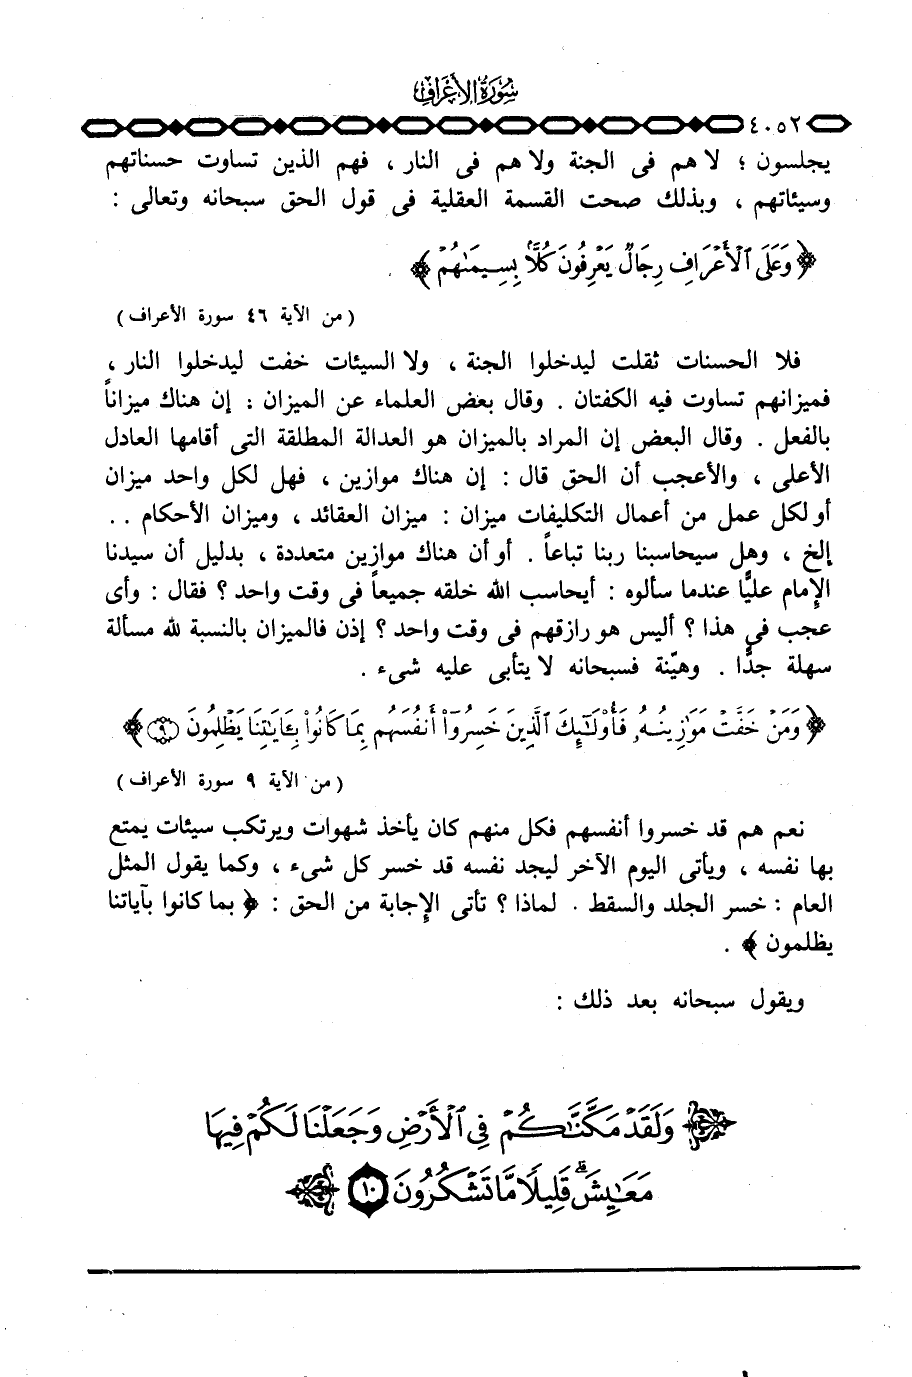 سُورَةُ الأَعْرَافِ
٤٠٥٢
يجلسون ؛ لا هم فى الجنة ولا هم فى النار ، فهم الذين تساوت حسناتهم
وسيئاتهم ، وبذلك صحت القسمة العقلية فى قول الحق سبحانه وتعالى :
﴿ وَعَلَى ٱلْأَعْرَافِ رِجَالٌ يَعْرِفُونَ كُلًّۢا بِسِيمَىٰهُمْ ﴾
( من الآية ٤٦ سورة الأعراف )
فلا الحسنات ثقلت ليدخلوا الجنة ، ولا السيئات خفت ليدخلوا النار ،
فميزانهم تساوت فيه الكفتان . وقال بعض العلماء عن الميزان : إن هناك ميزاناً
بالفعل . وقال البعض إن المراد بالميزان هو العدالة المطلقة التى أقامها العادل
الأعلى ، والأعجب أن الحق قال : إن هناك موازين ، فهل لكل واحد ميزان
أو لكل عمل من أعمال التكليفات ميزان : ميزان العقائد ، وميزان الأحكام . .
إلخ ، وهل سيحاسبنا ربنا تباعاً . أو أن هناك موازين متعددة ، بدليل أن سيدنا
الإمام عليًّا عندما سألوه : أيحاسب الله خلقه جميعاً فى وقت واحد ؟ فقال : وأى
عجب في هذا ؟ أليس هو رازقهم فى وقت واحد ؟ إذن فالميزان بالنسبة لله مسألة
سهلة جدًّا . وهيّنة فسبحانه لا يتأبى عليه شىء .
﴿ وَمَنْ خَفَّتْ مَوَٰزِينُهُۥ فَأُو۟لَٰٓئِكَ ٱلَّذِينَ خَسِرُوٓا۟ أَنفُسَهُم بِمَا كَانُوا۟ بِـَٔايَٰتِنَا يَظْلِمُونَ ۝٩ ﴾
( من الآية ٩ سورة الأعراف )
نعم هم قد خسروا أنفسهم فكل منهم كان يأخذ شهوات ويرتكب سيئات يمتع
بها نفسه ، ويأتى اليوم الآخر ليجد نفسه قد خسر كل شىء ، وكما يقول المثل
العام : خسر الجلد والسقط . لماذا ؟ تأتى الإجابة من الحق : ﴿ بما كانوا بآياتنا
يظلمون ﴾ .
ويقول سبحانه بعد ذلك :
﴿ وَلَقَدْ مَكَّنَّٰكُمْ فِى ٱلْأَرْضِ وَجَعَلْنَا لَكُمْ فِيهَا
مَعَٰيِشَ ۗ قَلِيلًا مَّا تَشْكُرُونَ ۝١٠ ﴾